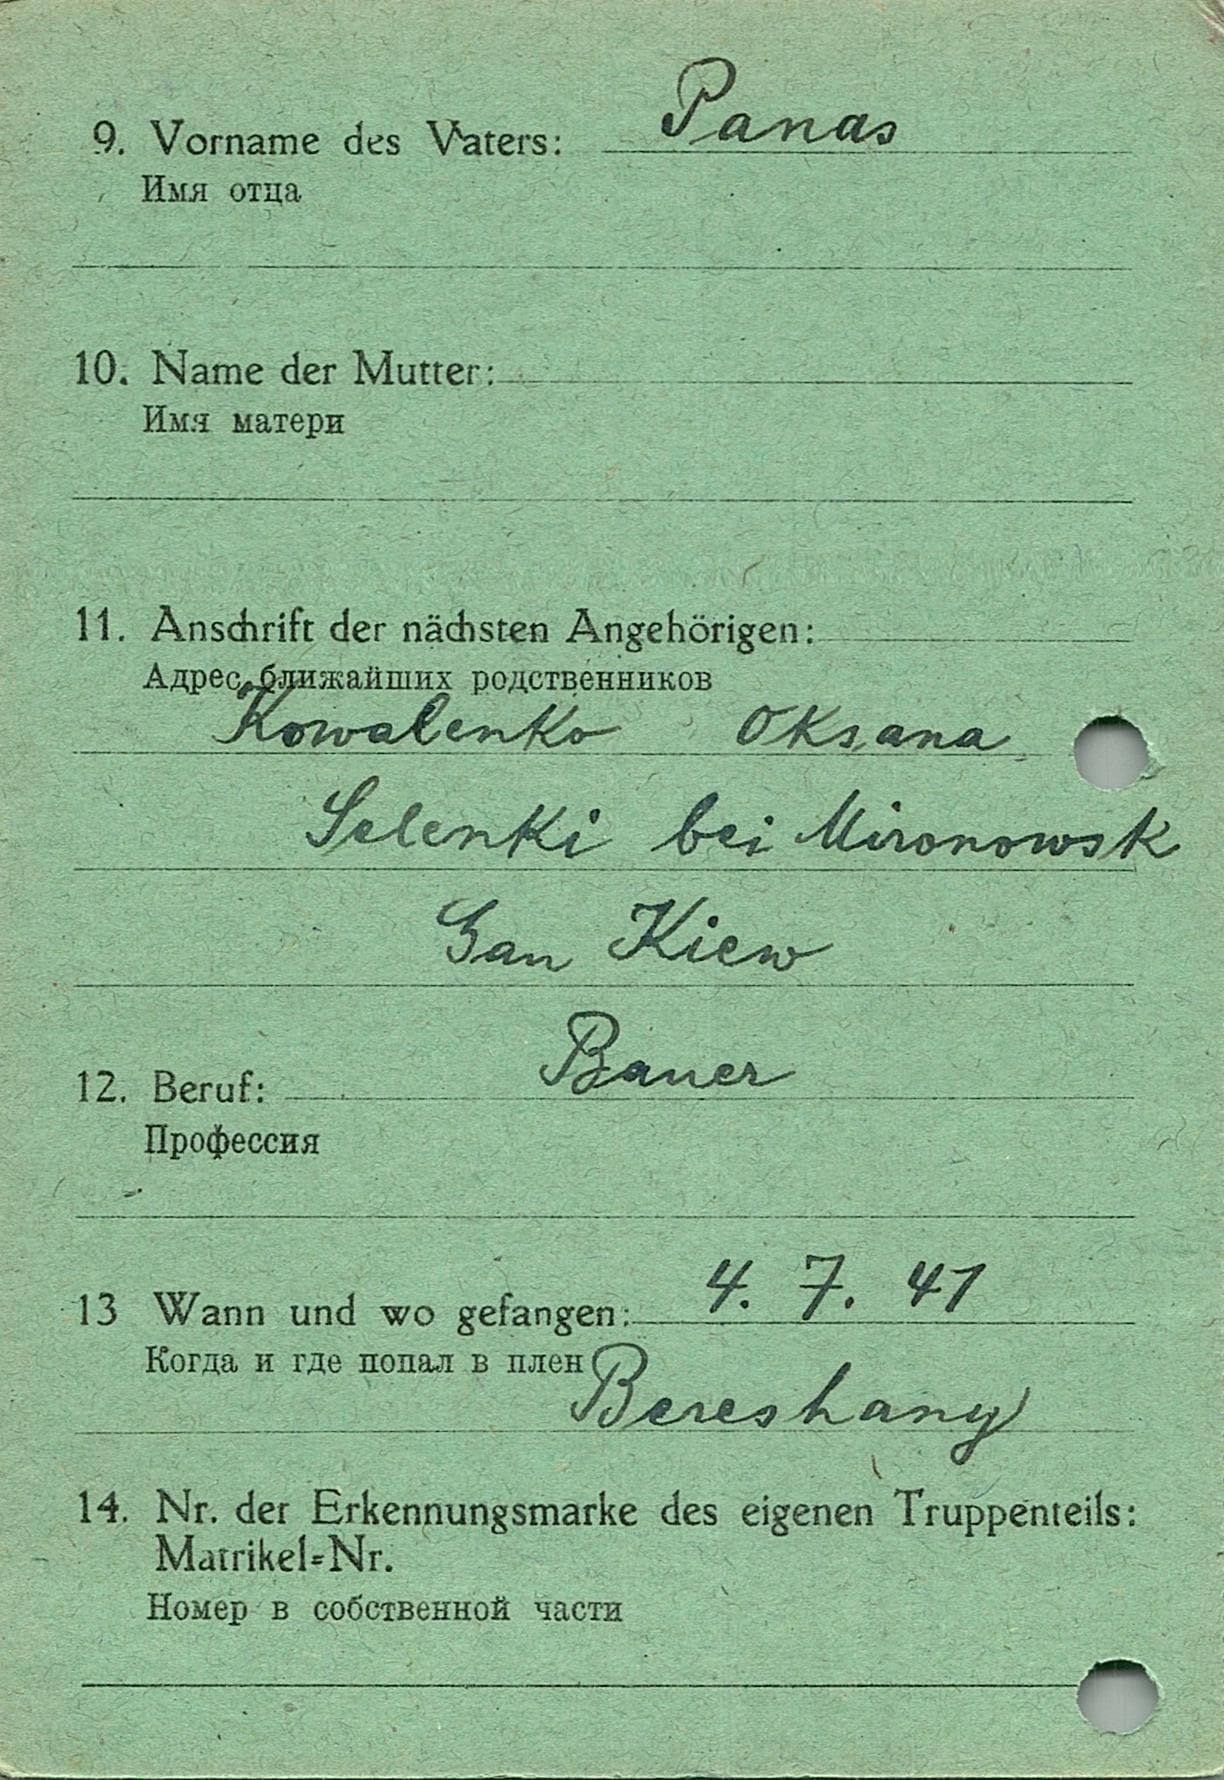 9. Vorname des Vaters: Panas
Имя отца
10. Name der Mutter:
Имя матери
11. Anschrift der nächsten Angehörigen:
Адрес ближайших родственников
Kowalenko Oksana
Selenki bei Mironowsk
Gau Kiew
12. Beruf: Bauer
Профессия
13 Wann und wo gefangen: 4. 7. 41
Когда и где попал в плен Bereshany
14. Nr. der Erkennungsmarke des eigenen Truppenteils:
Matrikel=Nr.
Номер в собственной части